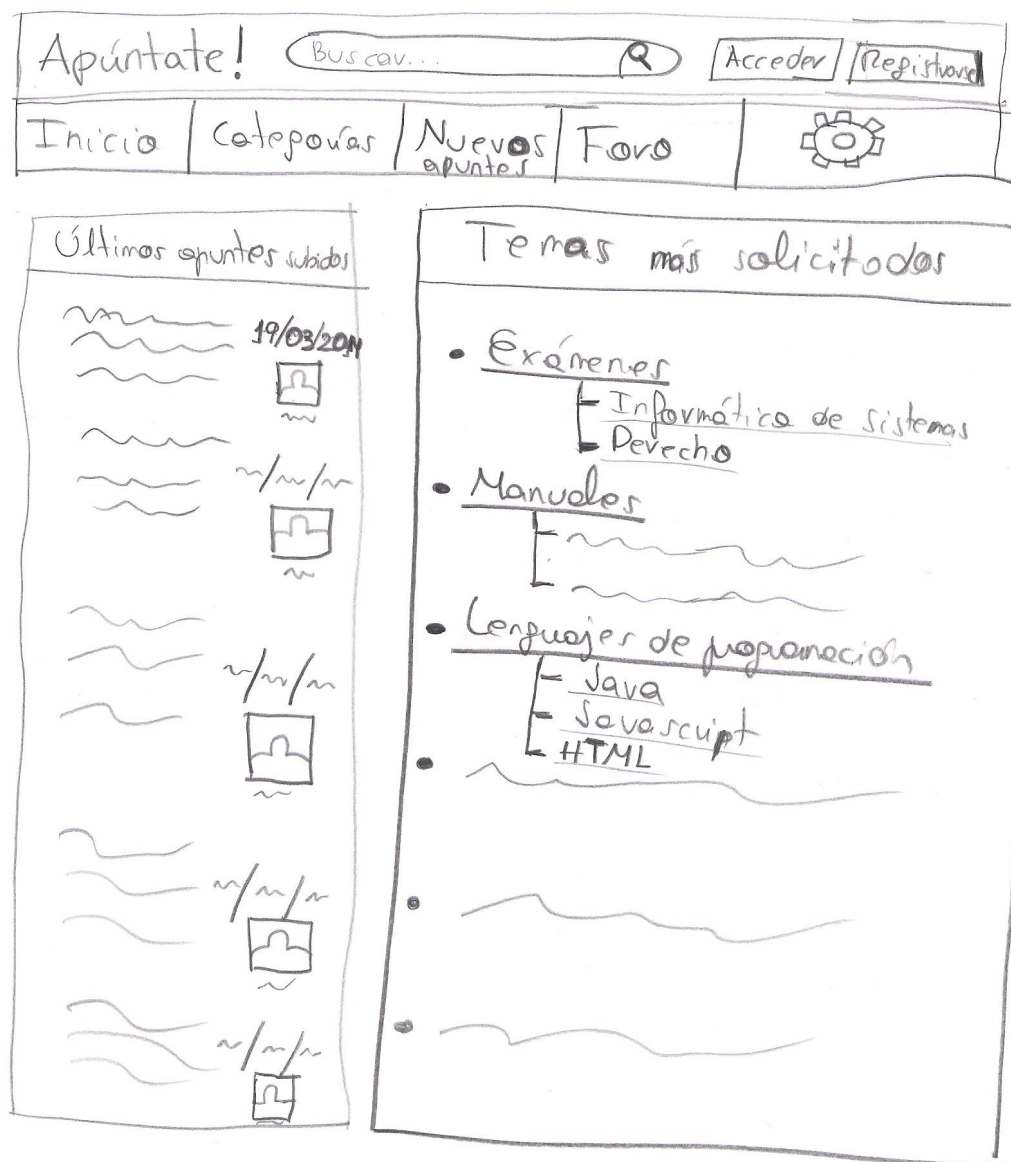 Apúntate!
Buscar...
Acceder
Registrarse
Inicio
Categorías
Nuevos
apuntes
Foro
Últimos apuntes subidos
19/03/2014
Temas más solicitados
Exámenes
Informática de sistemas
Derecho
Manuales
Lenguajes de programación
Java
Javascript
HTML